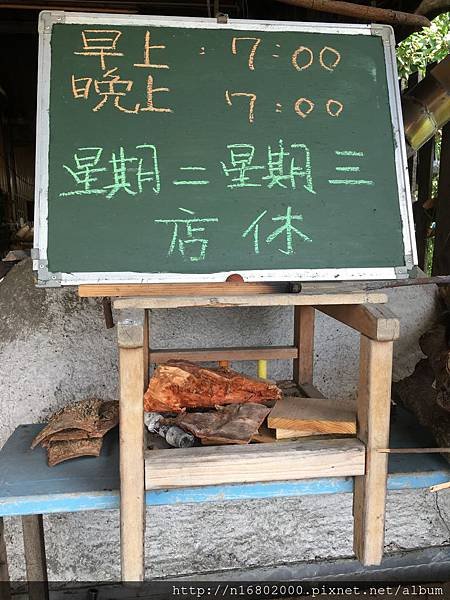 早上：7：00
晚上7：00
星期二星期三
店休
http://n16802000.pixnet.net/album